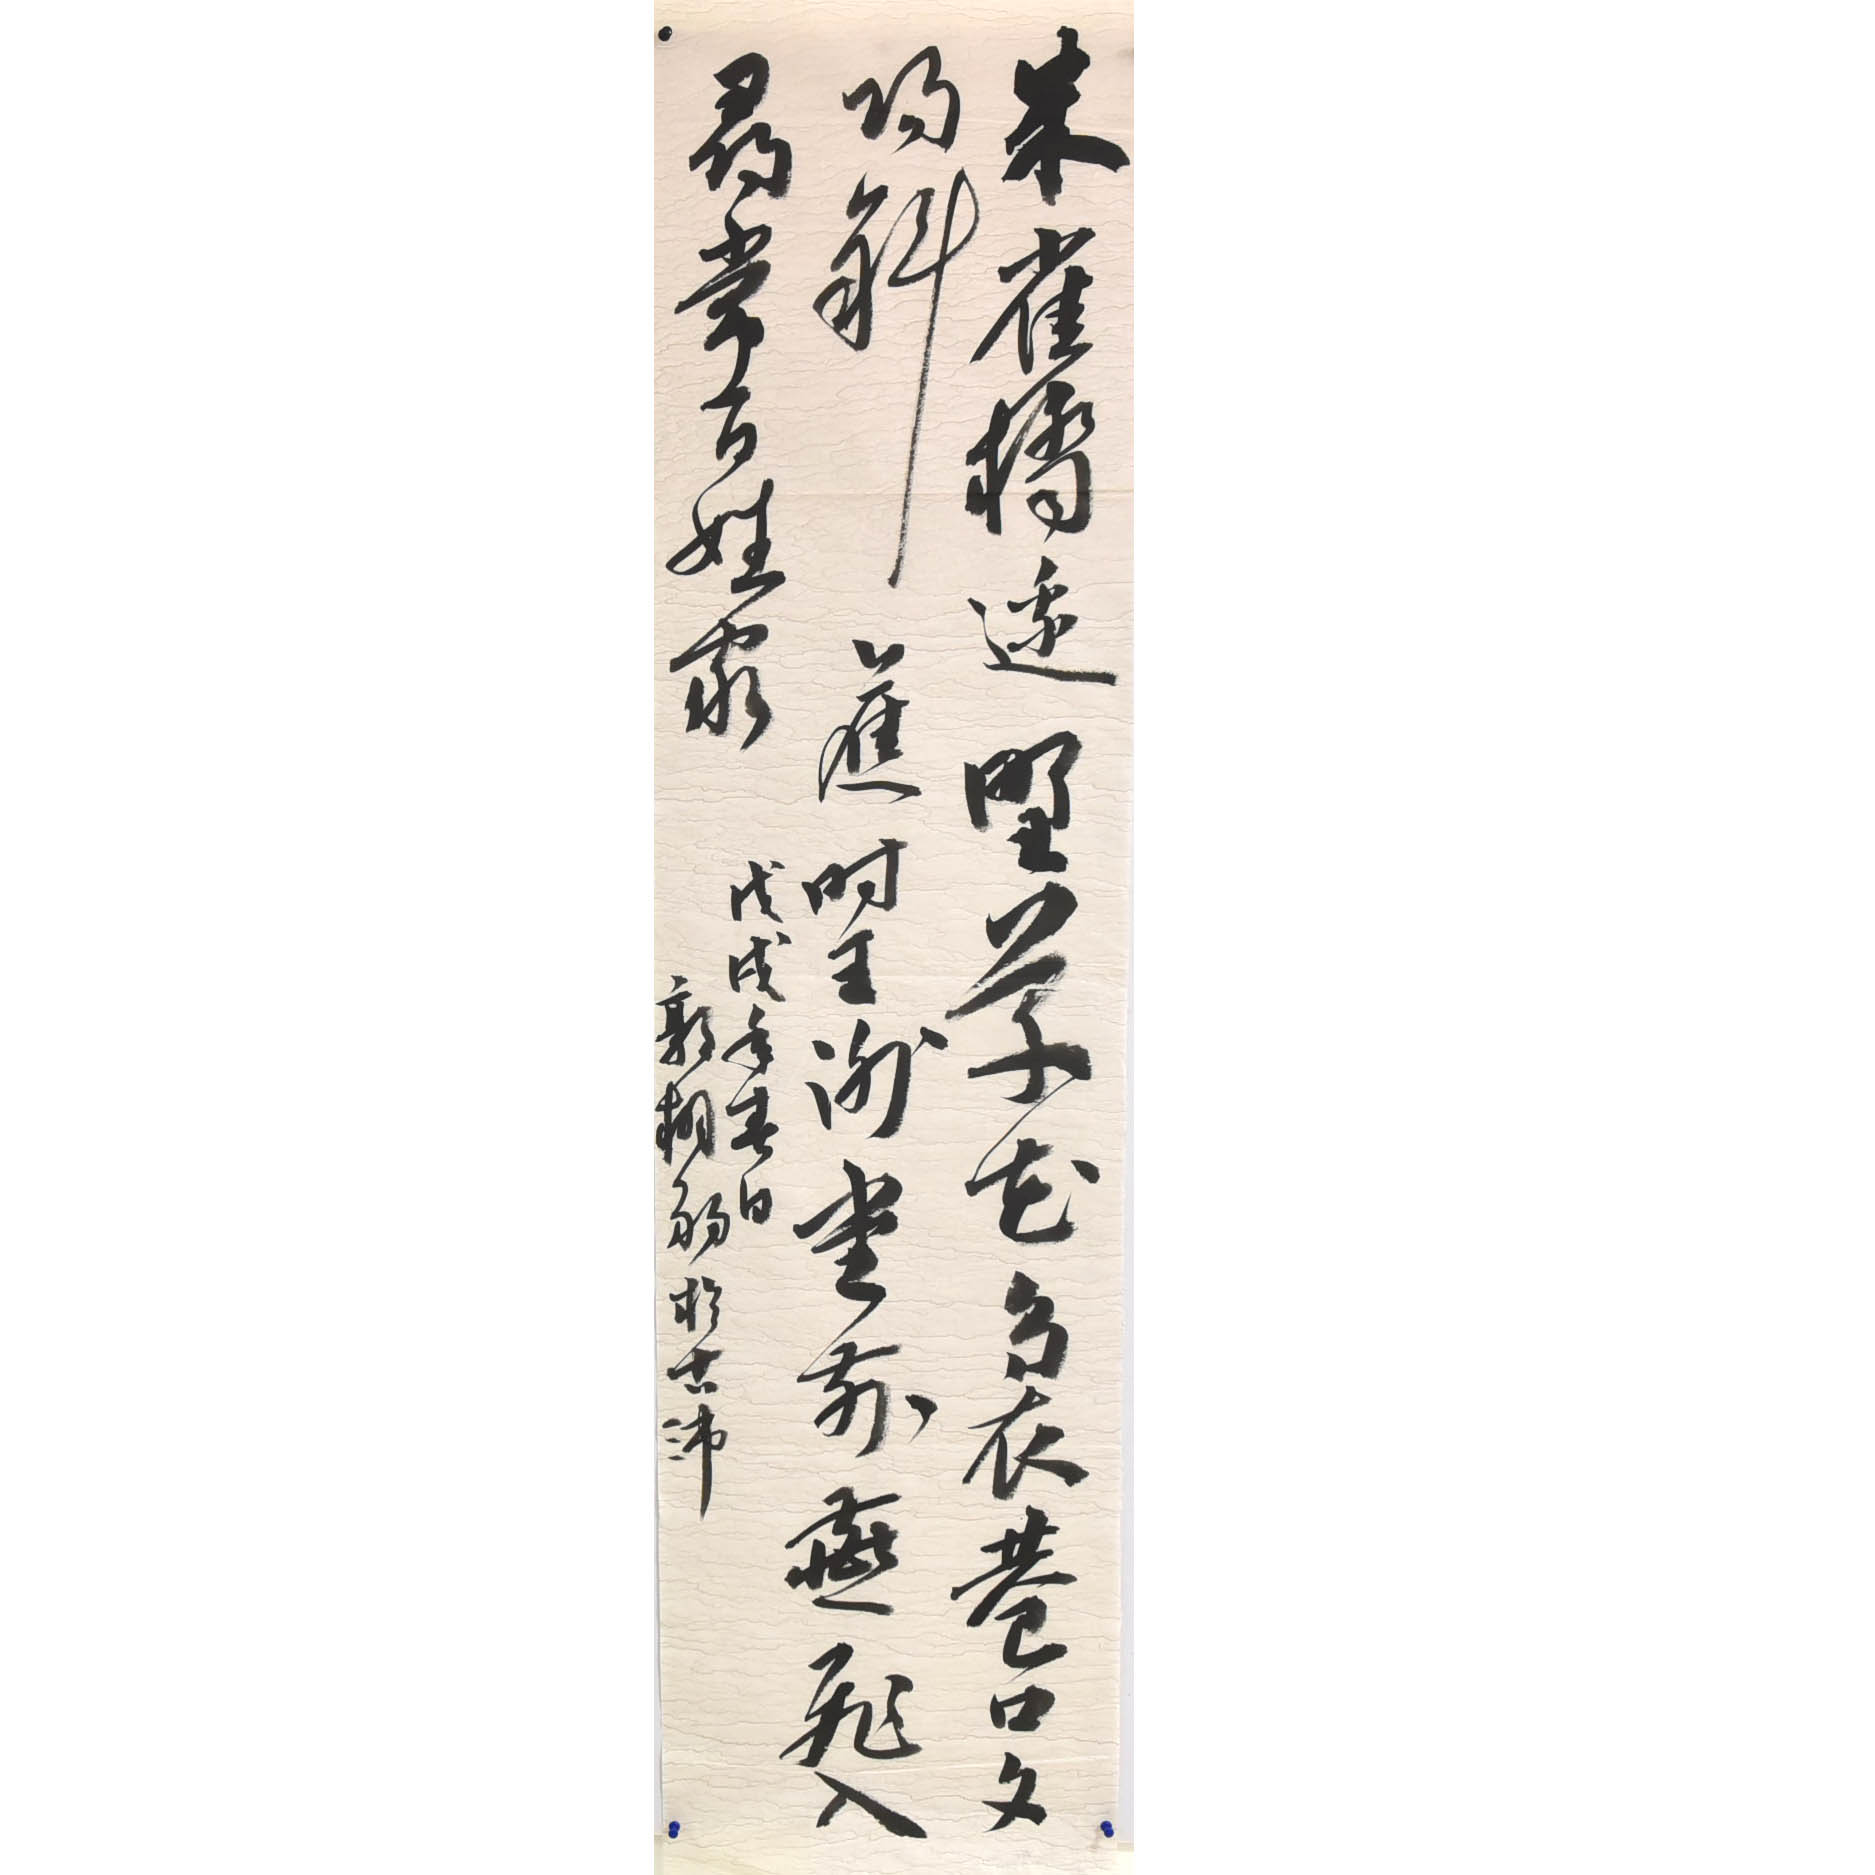 朱雀橋邊野草花烏衣巷口夕
陽斜舊時王謝堂前燕飛入
尋常百姓家
戊戌年春日
郭於古沛